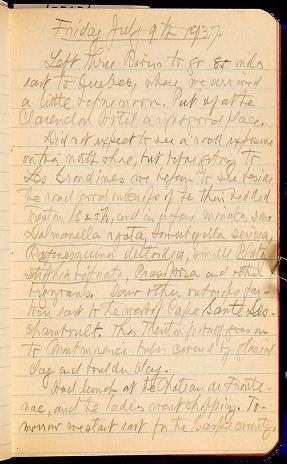 Friday July 9th 1937.
Left Three Rivers to go 80 miles
east to Quebec, where we arrived
a little before noon. Put up at the
Clarendon Hotel a right good place.
Did not expect to see a roll exposure
on the north shore, but before going to
Les Grondines we began to see beside
the road good outcrops of the thin bedded
Trenton and in a few minutes saw
Dalmanella rogata, Sowerbyella sericea,
Rafinesquina deltoidea, small
Prasopora and other
bryozoans. Saw other outcrops far-
ther east to the west of Cape Santé Des-
chambault. This Trenton goes on
to Montmorenci being covered by glacial
clay and boulder clay.
Had lunch at the Chateau de Fronte-
nac, and the ladies went shopping. To-
morrow we start east for the Gaspé country.